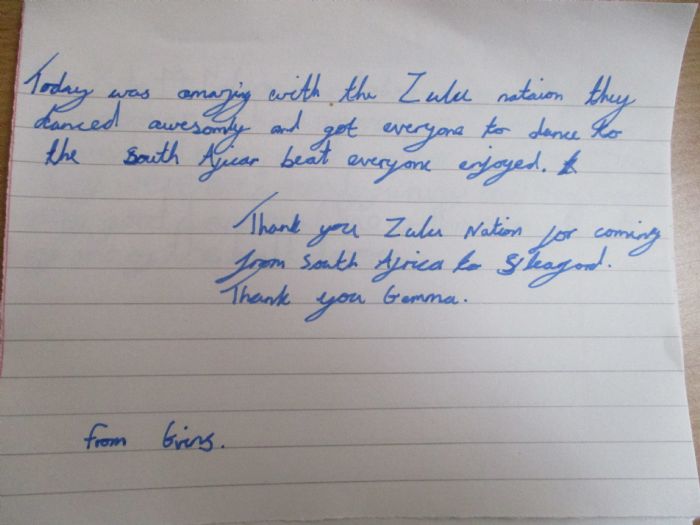 Today was amazing with the Zulu nataion they
danced awesomly and got everyone to dance to
the south Afican beat everyone enjoyed.
Thank you Zulu Nation for coming
from south Africa to
Thank you Gemma.
from